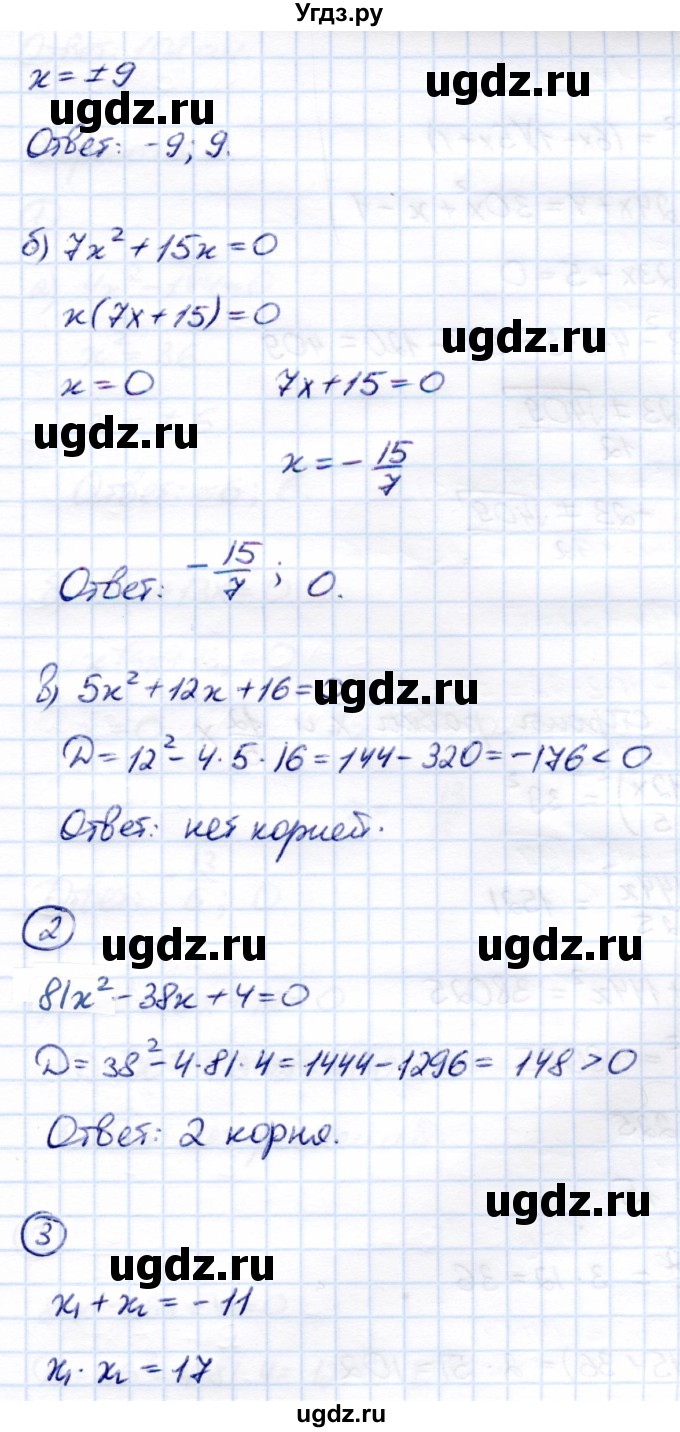 Угдз.ру
x = ±9
ugdz.ru ugdz.ru
Ответ: -9; 9.
б) 7x² + 15x = 0
x(7x + 15) = 0
ugdz.ru
x = 0 7x + 15 = 0
ugdz.ru
x = -15/7
Ответ: -15/7; 0.
в) 5x² + 12x + 16 = 0
ugdz.ru
D = 12² - 4·5·16 = 144 - 320 = -176 < 0
Ответ: нет корней.
2
ugdz.ru ugdz.ru
81x² - 38x + 4 = 0
D = 38² - 4·81·4 = 1444 - 1296 = 148 > 0
Ответ: 2 корня.
ugdz.ru
3
ugdz.ru
x₁ + x₂ = -11
x₁ · x₂ = 17
ugdz.ru